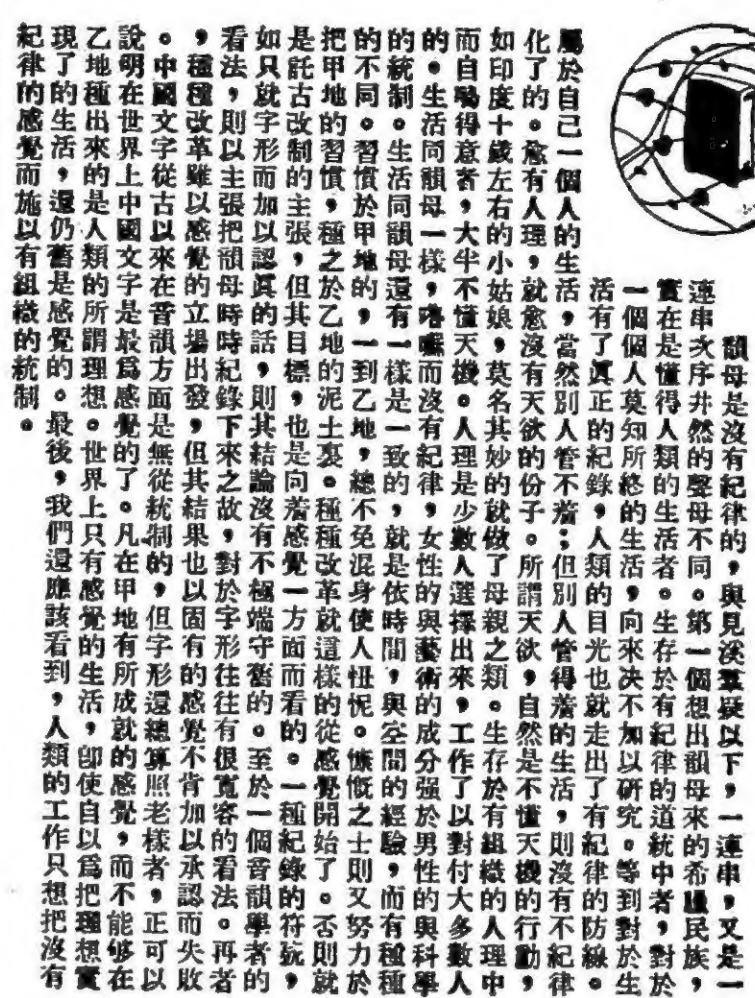 韻母是沒有紀律的，與見溪羣疑以下，一連串，又是一
連串次序井然的聲母不同。第一個想出韻母來的希臘民族，
實在是懂得人類的生活者。生存於有紀律的道統中者，對於
一個個人莫知所終的生活，向來決不加以研究。等到對於生
活有了眞正的紀錄，人類的目光也就走出了有紀律的防線。
屬於自己一個人的生活，當然別人管不着；但別人管得着的生活，則沒有不紀律
化了的。愈有人理，就愈沒有天欲的份子。所謂天欲，自然是不懂天機的行動，
如印度十歲左右的小姑娘，莫名其妙的就做了母親之類。生存於有組織的人理中
而自鳴得意者，大半不懂天機。人理是少數人選擇出來，工作了以對付大多數人
的。生活同韻母一樣，嚕囌而沒有紀律，女性的與藝術的成分强於男性的與科學
的統制。生活同韻母還有一樣是一致的，就是依時間，與空間的經驗，而有種種
的不同。習慣於甲地的，一到乙地，總不免混身使人忸怩。慷慨之士則又努力於
把甲地的習慣，種之於乙地的泥土裏。種種改革就這樣的從感覺開始了。否則就
是託古改制的主張，但其目標，也是向着感覺一方面而看的。一種紀錄的符號，
如只就字形而加以認眞的話，則其結論沒有不極端守舊的。至於一個音韻學者的
看法，則以主張把韻母時時紀錄下來之故，對於字形往往有很寬容的看法。再者
，種種改革雖以感覺的立場出發，但其結果也以固有的感覺不肯加以承認而失敗
。中國文字從古以來在音韻方面是無從統制的，但字形還總算照老樣者，正可以
說明在世界上中國文字是最爲感覺的了。凡在甲地有所成就的感覺，而不能够在
乙地種出來的是人類的所謂理想。世界上只有感覺的生活，卽使自以爲把理想實
現了的生活，還仍舊是感覺的。最後，我們還應該看到，人類的工作只想把沒有
紀律的感覺而施以有組織的統制。